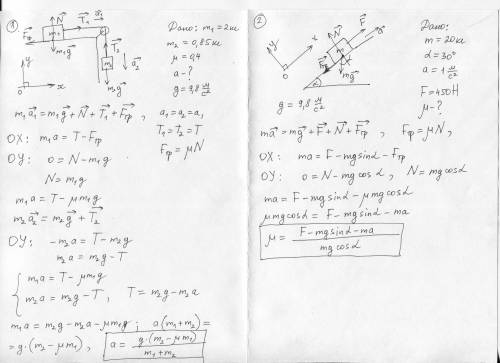 ①
N⃗ T⃗₁ a⃗₁
F⃗тр m₁ T⃗₂
m₁g⃗ m₂ a⃗₂
y m₂g⃗
0 x
Дано: m₁ = 2кг
m₂ = 0,85кг
μ = 0,4
a - ?
g = 9,8 м/с²
m₁a⃗₁ = m₁g⃗ + N⃗ + T⃗₁ + F⃗тр , a₁ = a₂ = a,
T⃗₁ = T⃗₂ = T
Fтр = μN
OX: m₁a = T - Fтр
OY: 0 = N - m₁g
N = m₁g
m₁a = T - μm₁g
m₂a⃗₂ = m₂g⃗ + T⃗₂
OY: -m₂a = T - m₂g
m₂a = m₂g - T
{ m₁a = T - μm₁g
m₂a = m₂g - T , T = m₂g - m₂a
m₁a = m₂g - m₂a - μm₁g ; a(m₁+m₂) =
= g·(m₂ - μm₁) , a = g·(m₂ - μm₁) / m₁+m₂
②
y N⃗ F⃗
x m a⃗
0 F⃗тр
α mg⃗
g = 9,8 м/с²
Дано:
m = 20кг
α = 30°
a = 1 м/с²
F = 450Н
μ - ?
ma⃗ = mg⃗ + F⃗ + N⃗ + F⃗тр , Fтр = μN ,
OX: ma = F - mgsinα - Fтр
OY: 0 = N - mgcosα , N = mgcosα
ma = F - mgsinα - μmgcosα
μmgcosα = F - mgsinα - ma
μ = F - mgsinα - ma / mgcosα